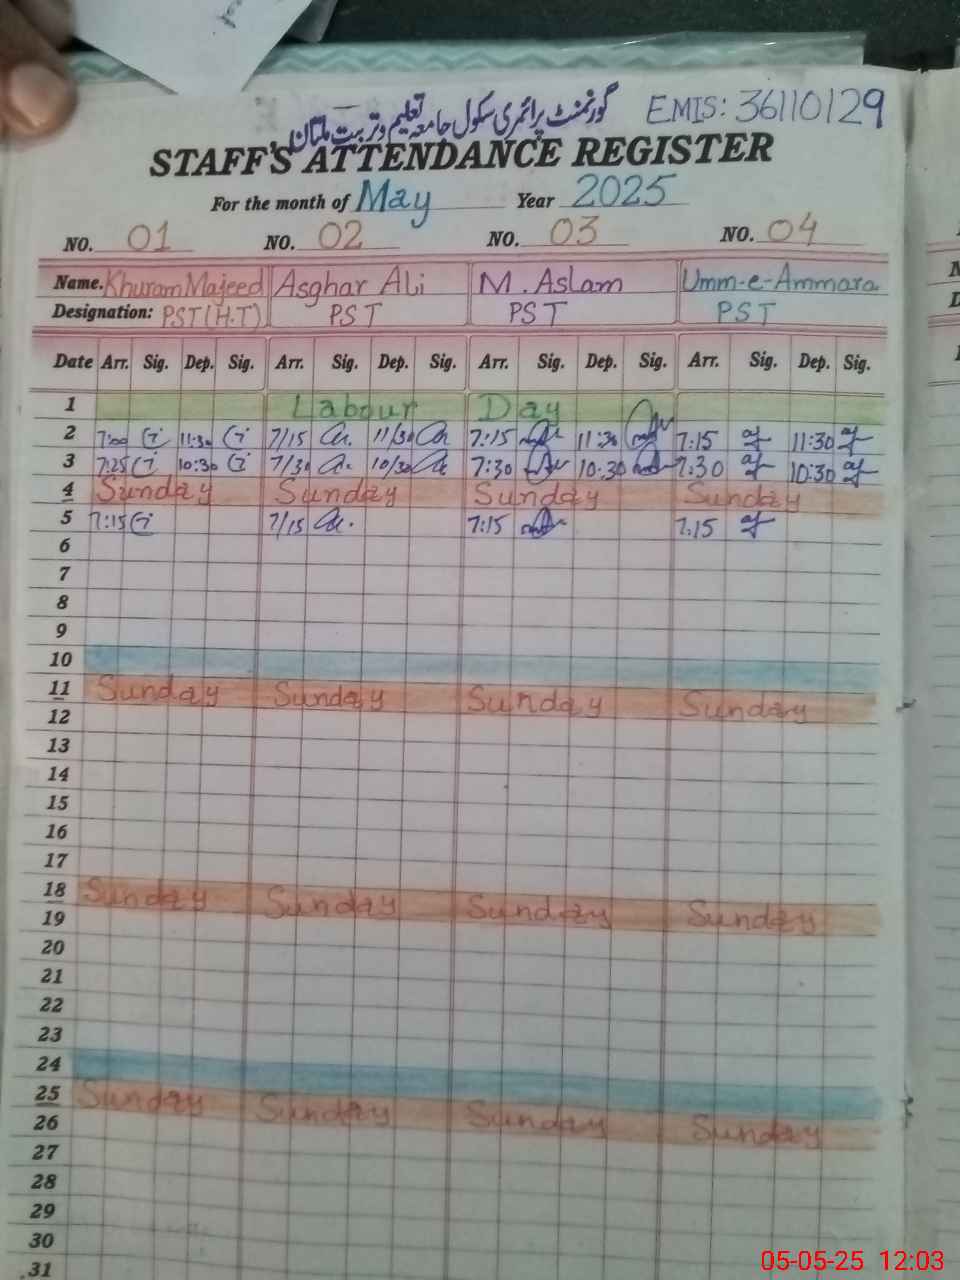 گورنمنٹ پرائمری سکول جامعہ تعلیم و تربیت ملتان EMIS: 36110129
STAFF'S ATTENDANCE REGISTER
For the month of May Year 2025
NO. 01 NO. 02 NO. 03 NO. 04
Name. Khuram Majeed Asghar Ali M. Aslam Umm-e-Ammara
Designation: PST(H.T) PST PST PST
Date Arr. Sig. Dep. Sig. Arr. Sig. Dep. Sig. Arr. Sig. Dep. Sig. Arr. Sig. Dep. Sig.
1 Labour Day
2 7:00 11:30 7/15 11/30 7:15 11:30 7:15 11:30
3 7:25 10:30 7/30 10/30 7:30 10:30 7:30 10:30
4 Sunday Sunday Sunday Sunday
5 7:15 7/15 7:15 7:15
6
7
8
9
10
11 Sunday Sunday Sunday Sunday
12
13
14
15
16
17
18 Sunday Sunday Sunday Sunday
19
20
21
22
23
24
25 Sunday Sunday Sunday Sunday
26
27
28
29
30
31
05-05-25 12:03